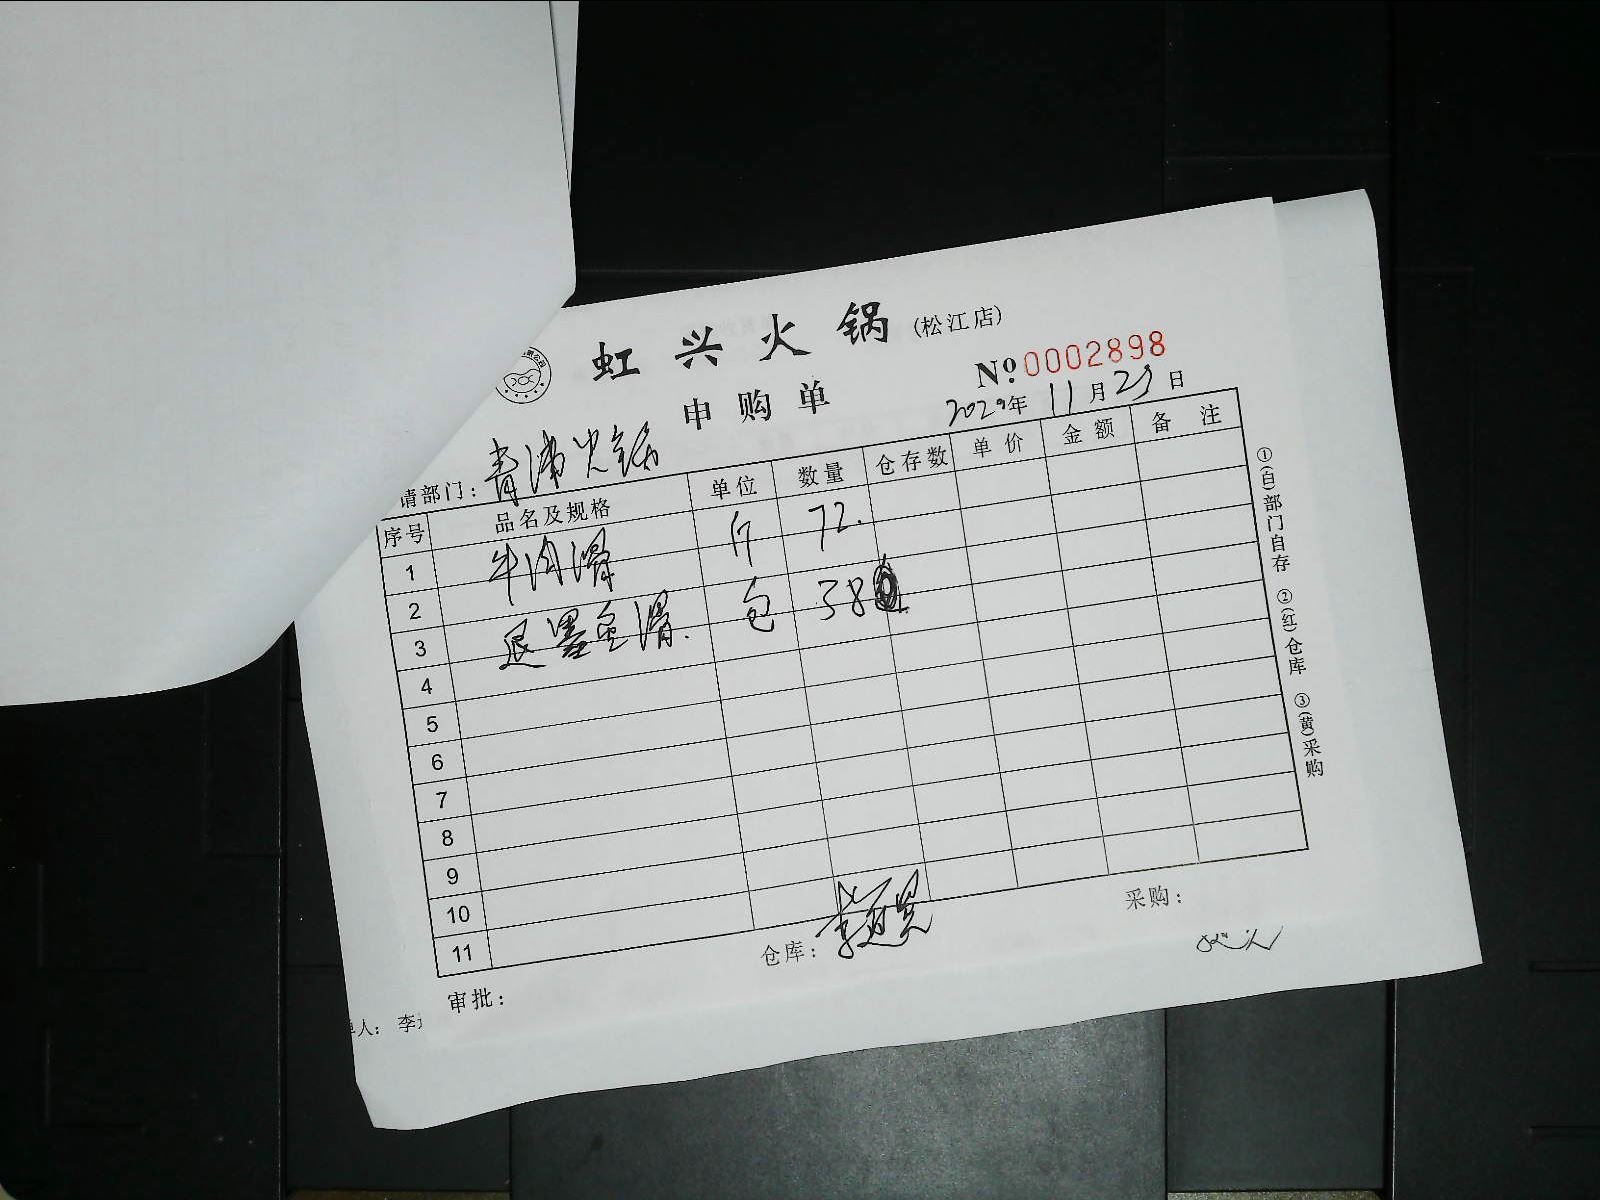 虹兴火锅(松江店)
申购单
Nº 0002898
2020年 11月23日
请部门: 青浦火锅
序号 品名及规格 单位 数量 仓存数 单价 金额 备注
1 牛肉滑 斤 72.
2
3 退墨鱼滑. 包 38
4
5
6
7
8
9
10
11
①(白)部门自存 ②(红)仓库 ③(黄)采购
审批: 仓库: 采购:
单人: 李